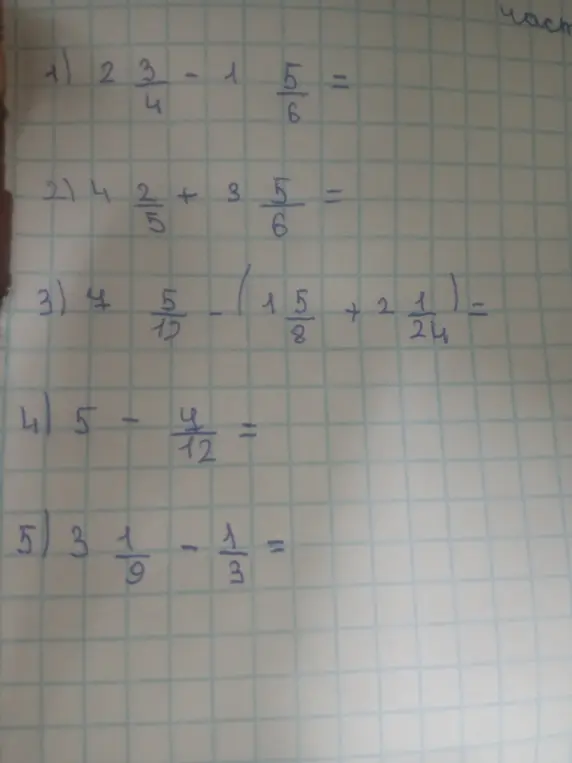 част
1) 2 3/4 - 1 5/6 =
2) 4 2/5 + 3 5/6 =
3) 7 5/12 - (1 5/8 + 2 1/24) =
4) 5 - 7/12 =
5) 3 1/9 - 1/3 =